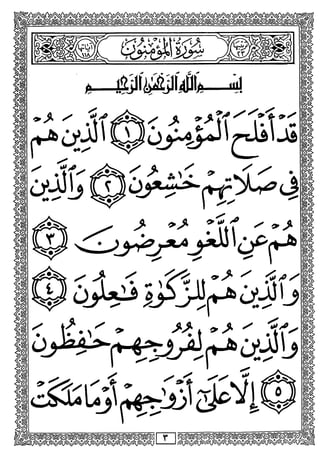 سُورَةُ الْمُؤْمِنُونَ
بِسْمِ اللَّهِ الرَّحْمَٰنِ الرَّحِيمِ
قَدْ أَفْلَحَ الْمُؤْمِنُونَ ١ الَّذِينَ هُمْ
فِي صَلَاتِهِمْ خَٰشِعُونَ ٢ وَالَّذِينَ
هُمْ عَنِ اللَّغْوِ مُعْرِضُونَ ٣
وَالَّذِينَ هُمْ لِلزَّكَوٰةِ فَٰعِلُونَ ٤
وَالَّذِينَ هُمْ لِفُرُوجِهِمْ حَٰفِظُونَ
٥ إِلَّا عَلَىٰٓ أَزْوَٰجِهِمْ أَوْ مَا مَلَكَتْ
٣